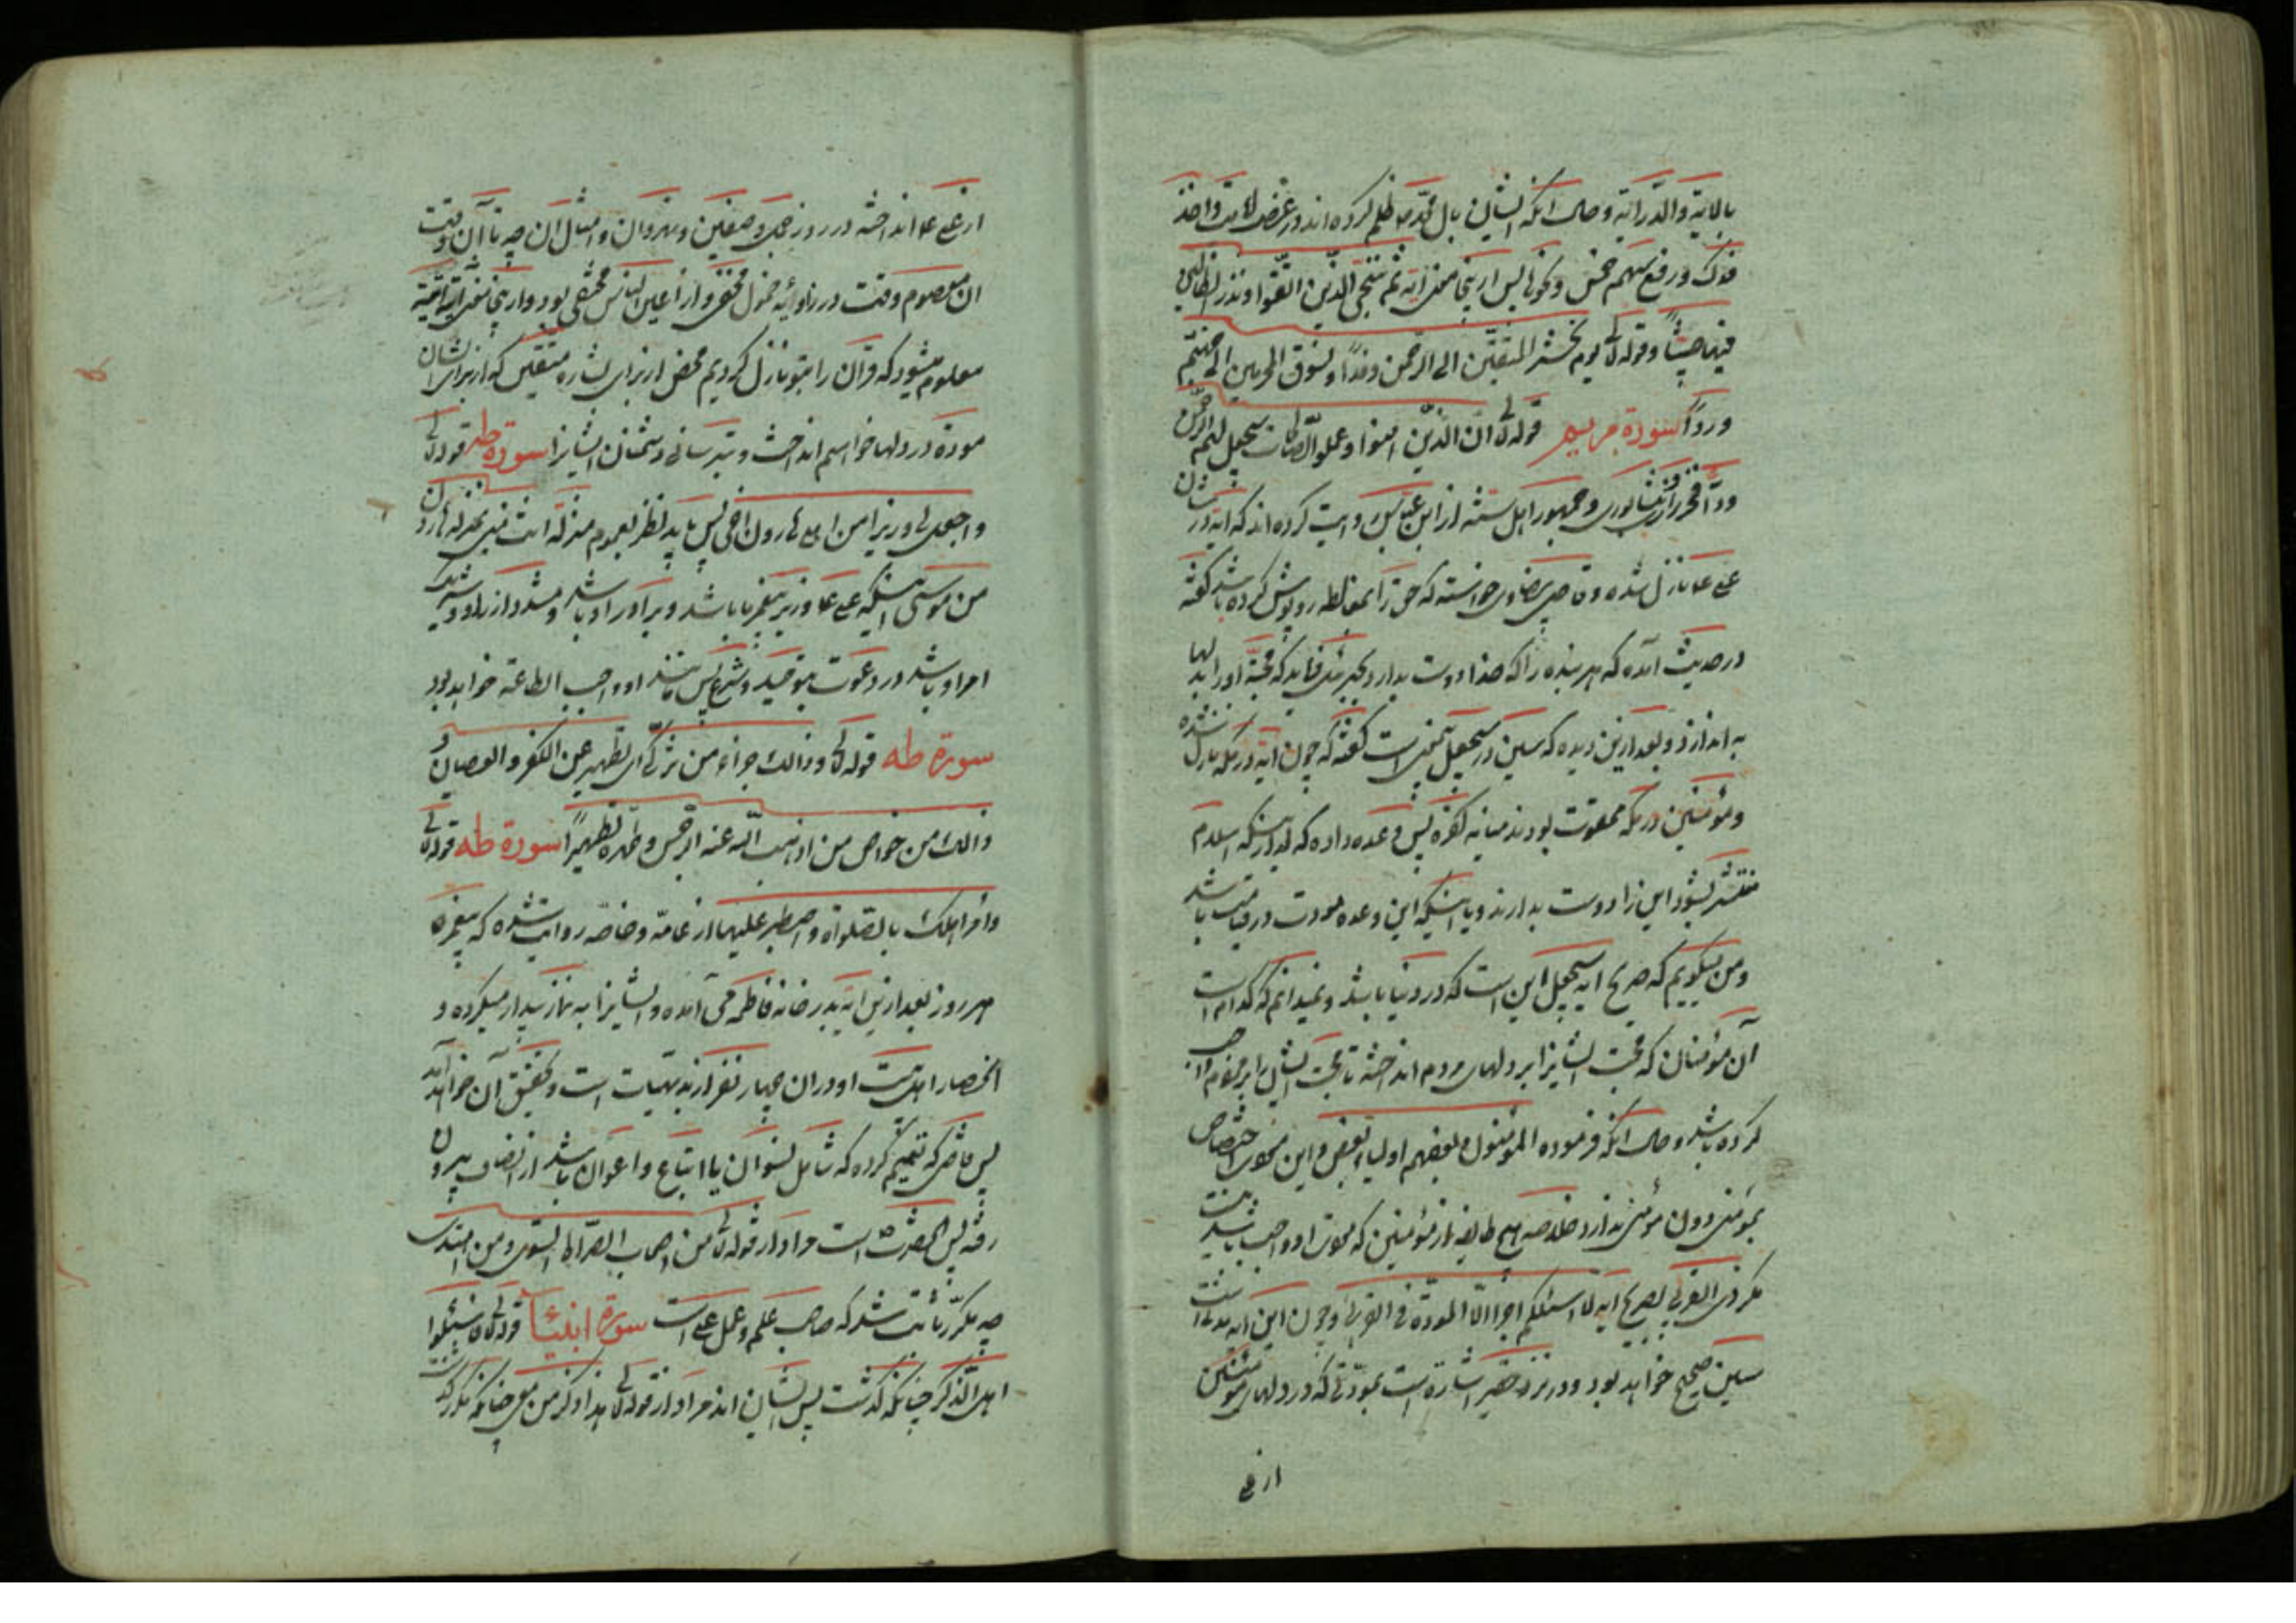 بالایة والدرایة و حال آنکه ایشان بال محمد ص ظلم کرده اند در غصب و اخذ
فدک و رفع سهم خمس و نحو پس از اینجا معنی آیه ثم ننجی الذین اتقوا و نذر الظالمین
فیها جثیّاً و قوله تع یوم نحشر المتقین الی الرحمن وفداً و نسوق المجرمین الی جهنم
ورداً سورة مریم قوله تع ان الذین امنوا و عملوا الصالحات سیجعل لهم الرحمن
ودّاً فخر رازی و نیشابوری و جمهور اهل سنته از ابن عباس روایت کرده اند که آیه در شان
علی ع نازل شده و قاضی بیضاوی خواسته که حق را بمغالطه روپوش کرده باشد گفته
در حدیث آمده که هر بنده را که خدا دوست بدارد بجبرئیل میفرماید که محبة او را بدلها
به اندازد و بعد از این دیده که سین در سیجعل است گفته که چون آیه در مکه نازل شده
و مؤمنین در مکه ممقوت بودند میانه کفره پس وعده داده که بعد از اینکه اسلام
منتشر بشود این را دوست بدارند و یا اینکه این وعده مودت در قیامت باشد
و من میگویم که صریح آیه سیجعل این است که در دنیا باشد و نمیدانم که کدام است
آن مؤمنان که محبت ایشانرا بر دلهای مردم انداخته تا محبت ایشان را بر مردم واجب
کرده باشد و حال آنکه فرموده المؤمنون بعضهم اولیاء بعض و این نحو اختصاص
بمؤمنی دون مؤمنی ندارد خلاصه هیچ طایفه از مؤمنین که مودت او واجب باشد نیست
مگر ذی القربی بصریح آیه لا اسئلکم اجرا الّا المودة فی القربی و چون این آیه مدنی است
سین صحیح خواهد بود و در نزد حقیر اشارة است بمودتی که در دلهای مؤمنین
از علی
از علی ع انداخته در روز جمل و صفین و نهروان و امثال آن چه تا آن وقت
آن معصوم وقت در زاویه خمول مختفی و از اعین الناس مختفی بود و از اینجا معنی آیه آتیه
معلوم میشود که قرآن را بتو نازل کردیم محض از برای بشاره متقین که از برای ایشان
مودة در دلها خواهیم انداخت و بترسانی دشمنان ایشانرا سورة طه قوله تع
واجعل لی وزیرا من اهلی هارون اخی پس باید نظر بعموم منزله انت منی بمنزله هارون
من موسی اینکه علی ع وزیر پیغمبر ما باشد و برادر او باشد و مشدد ازر او و شریک
امر او باشد در دعوت بتوحید و شرع پس مانند او واجب الطاعة خواهد بود
سورة طه قوله تع و ذالک جزاء من تزکّی ای تطهر من الکفر و العصیان و
ذالک من خواص من اذهب الله عنه الرجس و طهره تطهیراً سورة طه قوله تع
وأمر اهلک بالصلواة واصطبر علیها از عامّه و خاصّه روایت شده که پیغمبر ص
هر روز بعد از این آیه بدر خانه فاطمه می آمده و ایشانرا به نماز بیدار میکرده و
انحصار اهلبیت او در آن چهار نفر از بدیهیات است و تحقیق آن خواهد آمد
پس هر که تعمیم کرده که شامل نسوان یا اتباع و اعوان باشد از انصاف بیرون
رفته پس آنحضرت است مراد از قوله تع من اصحاب الصراط السّوی و من اهتدی
چه مکرّر ثابت شد که صاحب علم و عمل علی است سورة انبیآ قوله تع فاسئلوا
اهل الذکر چنانکه گذشت پس ایشان اند مراد از قوله تع هذا ذکر من معی چنانکه مکرر گذشت